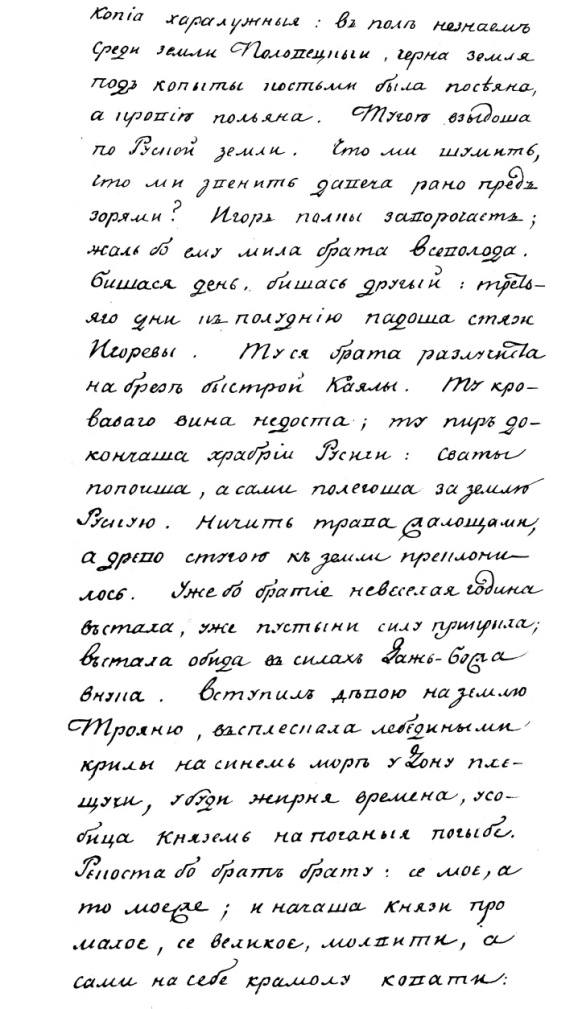 копіа харалужныя : въ полѣ незнаемѣ
среди земли Половецкыи , черна земля
подъ копыты костьми была посѣяна,
а кровію польяна . Тугою взыдоша
по Руской земли . Что ми шумить,
что ми звенить давеча рано предъ
зорями ? Игорь плъкы заворочаетъ ;
жаль бо ему мила брата Всеволода .
бишася день , бишася другый : треть-
яго дни къ полуднію падоша стязи
Игоревы . Ту ся брата разлучиста
на брезѣ быстрой Каялы . Ту кро-
ваваго вина недоста ; ту пиръ до-
кончаша храбріи Русичи : сваты
попоиша , а сами полегоша за землю
Рускую . Ничить трава жалощами,
а древо стугою къ земли преклони-
лось . Уже бо братіе невеселая година
въстала , уже пустыни силу прикрыла ;
въстала обида въ силахъ Дажь-Божа
внука . Вступилъ дѣвою на землю
Трояню , въсплескала лебедиными
крилы на синемъ морѣ у Дону пле-
щучи , убуди жирня времена , усо-
бица Княземъ на поганыя погыбе .
Рекоста бо братъ брату : се мое , а
то моеже ; и начаша Князи про
малое , се великое , молвити , а
сами на себе крамолу ковати :